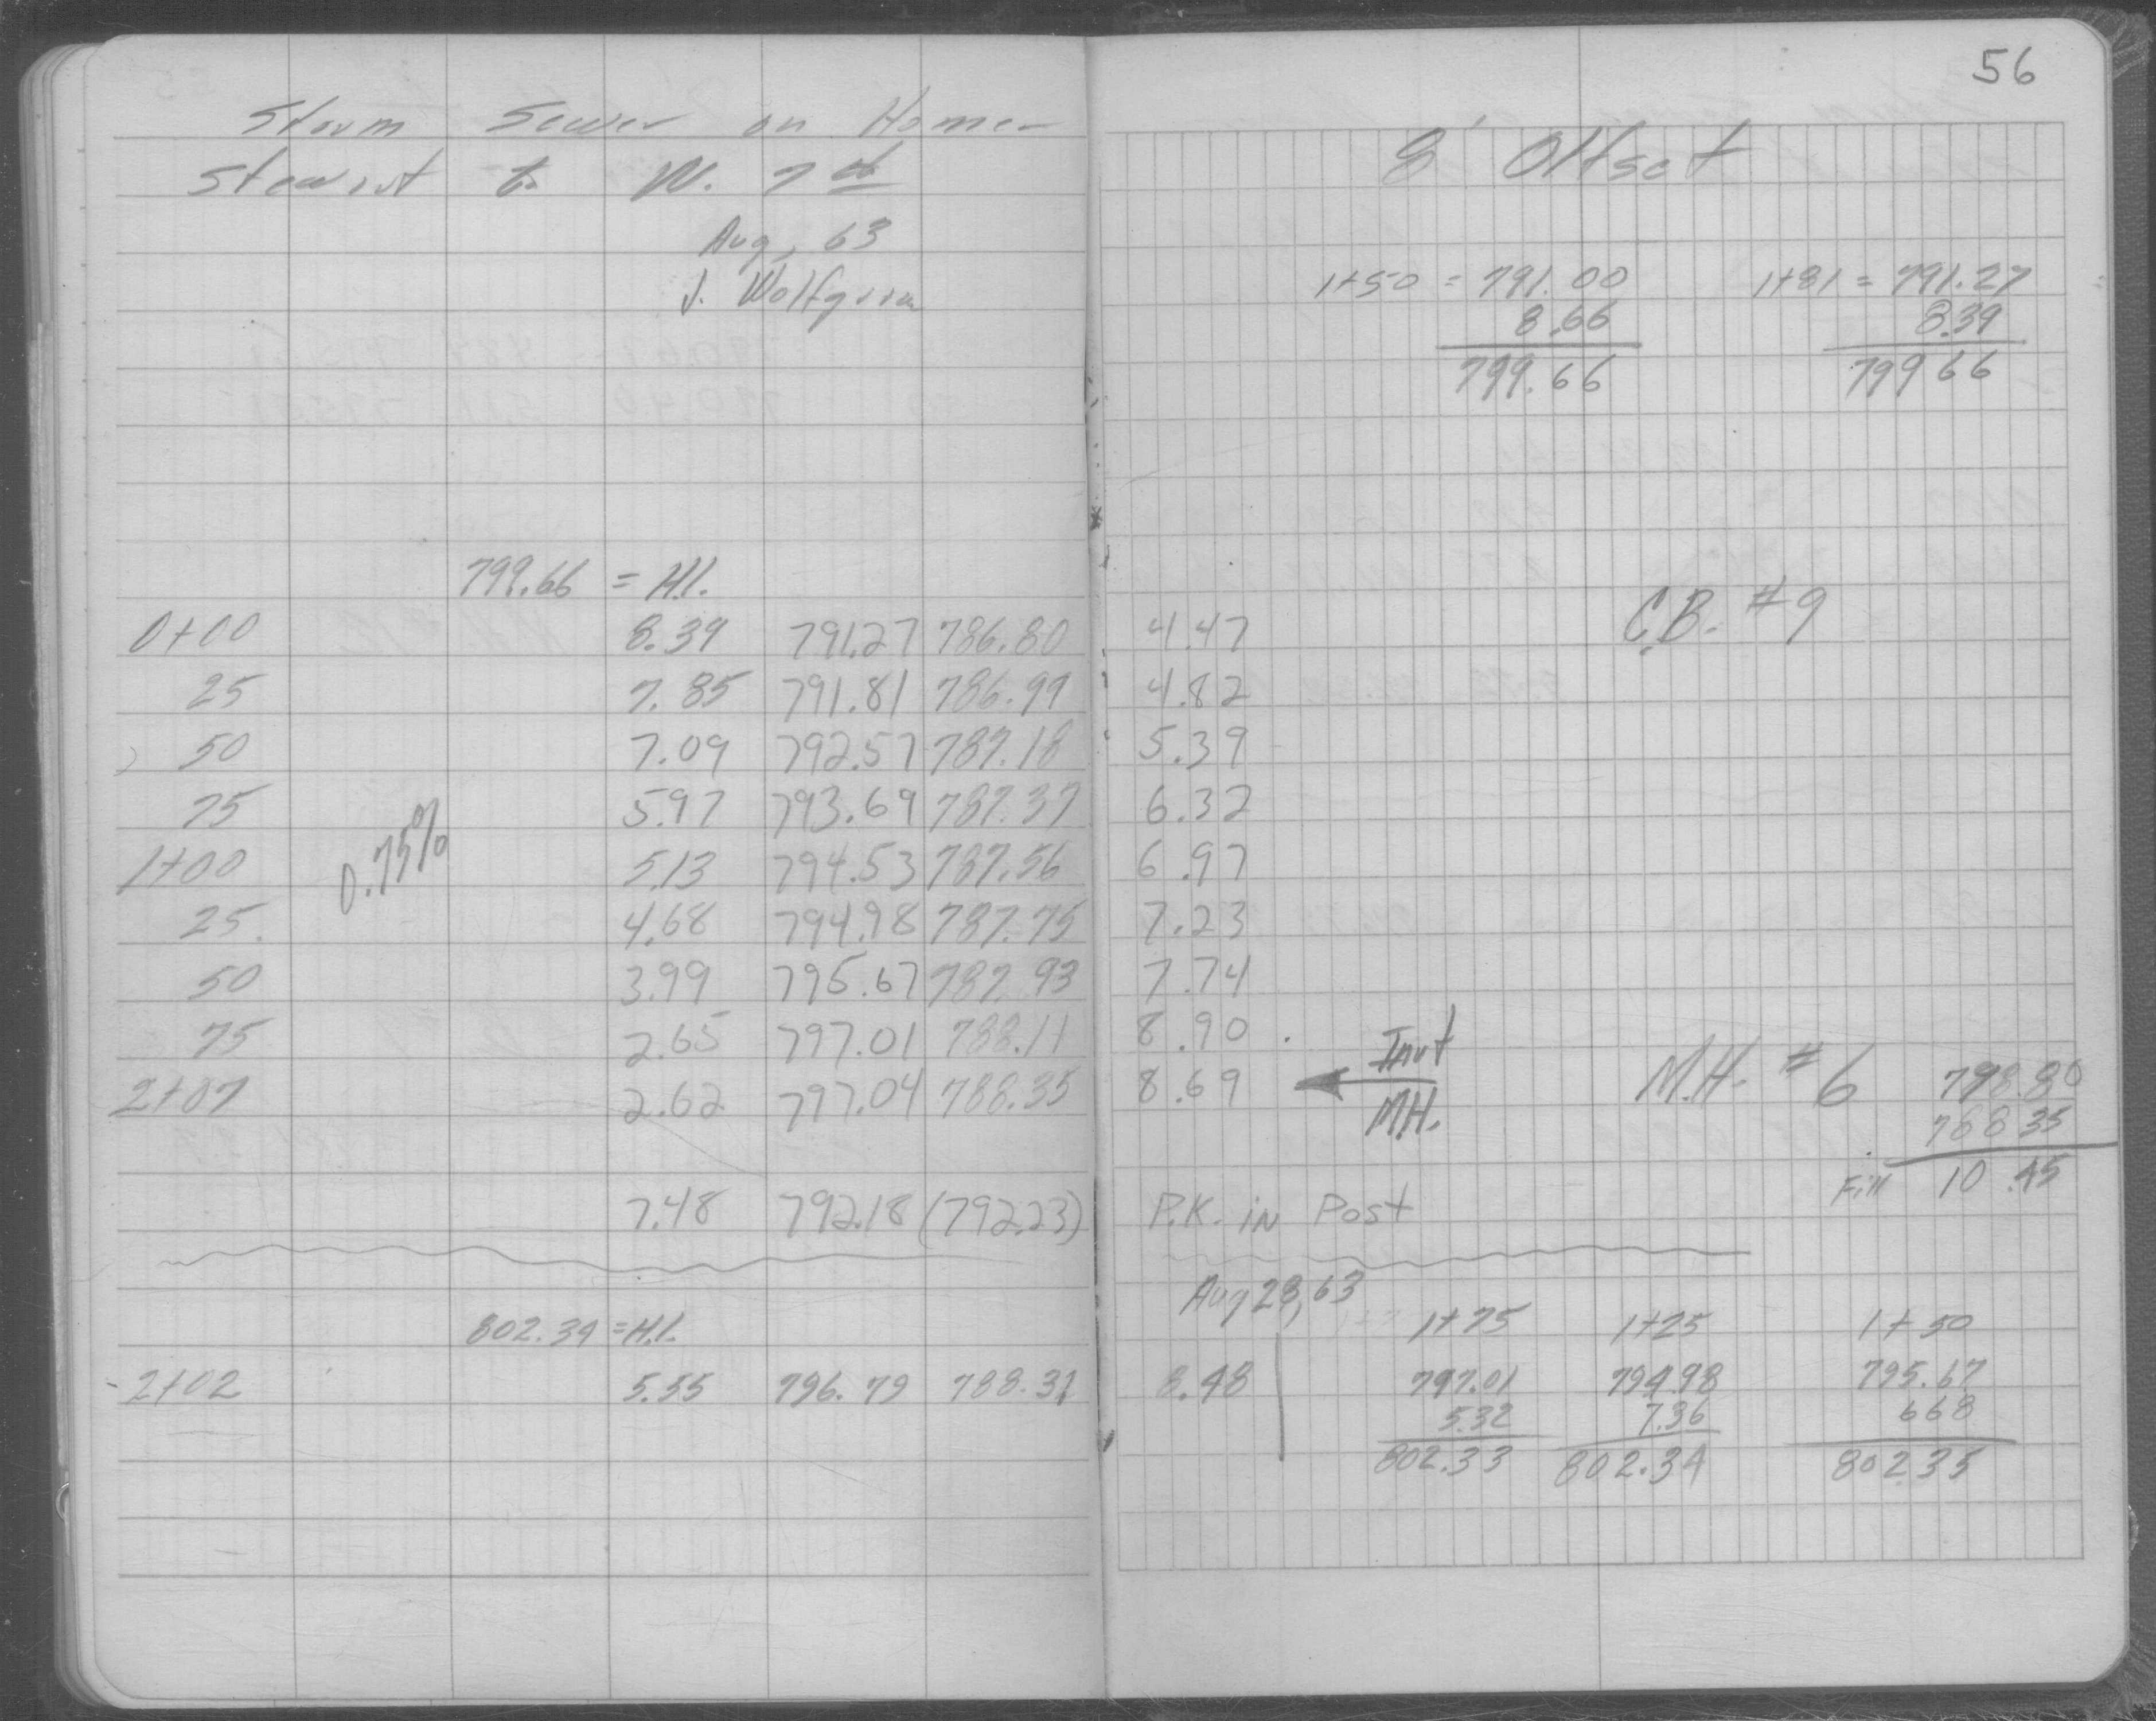 Storm Sewer on Homer
Stewart to W. 7th
Aug, 63
J. Wolfgram
799.66 = H.I.
0+00 8.39 791.27 786.80
25 7.85 791.81 786.99
50 7.09 792.57 787.18
75 5.97 793.69 787.37
1+00 5.13 794.53 787.56
25 4.68 794.98 787.75
50 3.99 795.67 787.93
75 2.65 797.01 788.11
2+07 2.62 797.04 788.35
0.75%
7.48 792.18 (792.23)
802.34 = H.I.
2+02 5.55 796.79 788.31
56
8' Offset
1+50 = 791.00 1+81 = 791.27
8.66 8.39
799.66 799 66
C.B. #9
4.47
4.82
5.39
6.32
6.97
7.23
7.74
8.90
8.69
Invt
M.H.
M.H. #6 798.80
788 35
Fill 10 .45
P.K. in Post
Aug 28, 63
1+75 1+25 1+50
8.48 797.01 794.98 795.67
5.32 7.36 668
802.33 802.34 802 35